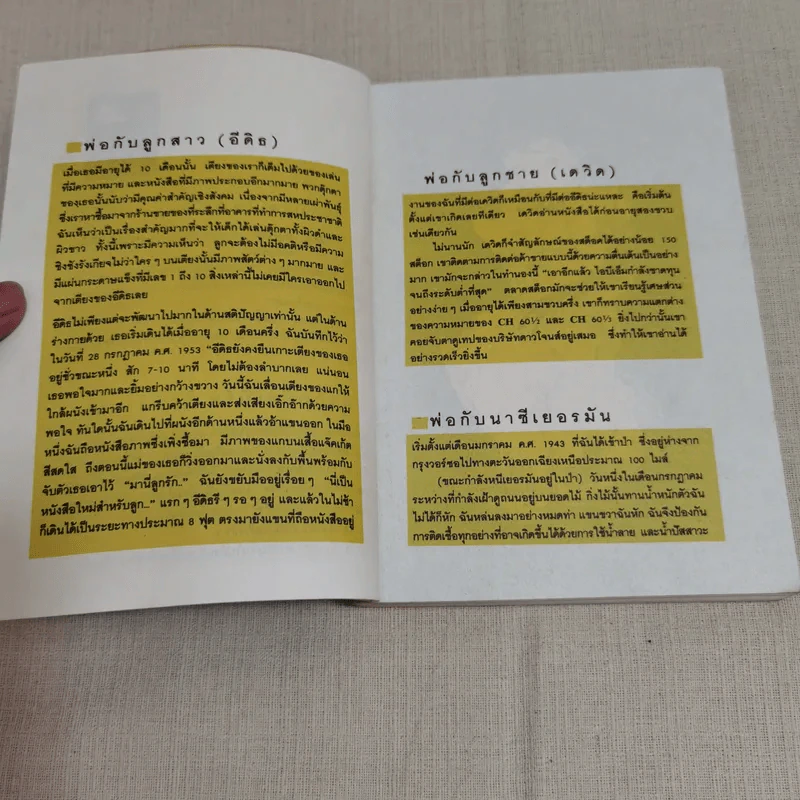 พ่อกับลูกสาว (อีดิธ)
เมื่อเธอมีอายุได้ 10 เดือนนั้น เตียงของเราก็เต็มไปด้วยของเล่น
ที่มีความหมาย และหนังสือที่มีภาพประกอบอีกมากมาย พวกตุ๊กตา
ของเธอนั้นนับว่ามีคุณค่าสำคัญเชิงสังคม เนื่องจากมีหลายเผ่าพันธุ์
ซึ่งเราหาซื้อมาจากร้านขายของที่ระลึกที่อาคารที่ทำการสหประชาชาติ
ฉันเห็นว่าเป็นเรื่องสำคัญมากที่จะให้เด็กได้เล่นตุ๊กตาทั้งผิวดำและ
ผิวขาว ทั้งนี้เพราะมีความเห็นว่า ลูกจะต้องไม่มีอคติหรือมีความ
ชิงชังรังเกียจไม่ว่าใคร ๆ บนเตียงนั้นมีภาพสัตว์ต่าง ๆ มากมาย และ
มีแผ่นกระดาษแข็งที่มีเลข 1 ถึง 10 สิ่งเหล่านี้ไม่เคยมีใครเอาออกไป
จากเตียงของอีดิธเลย
อีดิธไม่เพียงแต่จะพัฒนาไปมากในด้านสติปัญญาเท่านั้น แต่ในด้าน
ร่างกายด้วย เธอเริ่มเดินได้เมื่ออายุ 10 เดือนครึ่ง ฉันบันทึกไว้ว่า
ในวันที่ 28 กรกฎาคม ค.ศ. 1953 “อีดิธยังคงยืนเกาะเตียงของเธอ
อยู่ชั่วขณะหนึ่ง สัก 7-10 นาที โดยไม่ต้องลำบากเลย แน่นอน
เธอพอใจมากและยิ้มอย่างกว้างขวาง วันนี้ฉันเลื่อนเตียงของแกให้
ใกล้ผนังเข้ามาอีก แกรีบคว้าเตียงและส่งเสียงเอิ๊กอ๊ากด้วยความ
พอใจ ทันใดนั้นฉันเดินไปที่ผนังอีกด้านหนึ่งแล้วอ้าแขนออก ในมือ
หนึ่งฉันถือหนังสือภาพซึ่งเพิ่งซื้อมา มีภาพของแกบนเสื้อแจ๊คเก็ต
สีสดใส ถึงตอนนี้แม่ของเธอก็วิ่งออกมาและนั่งลงกับพื้นพร้อมกับ
จับตัวเธอเอาไว้ “มานี่ลูกรัก..” ฉันยังขยับมืออยู่เรื่อย ๆ “นี่เป็น
หนังสือใหม่สำหรับลูก...” แรก ๆ อีดิธรี ๆ รอ ๆ อยู่ และแล้วในไม่ช้า
ก็เดินได้เป็นระยะทางประมาณ 8 ฟุต ตรงมายังแขนที่ถือหนังสืออยู่
พ่อกับลูกชาย (เดวิด)
งานของฉันที่มีต่อเดวิดก็เหมือนกับที่มีต่ออีดิธน่ะแหละ คือเริ่มต้น
ตั้งแต่เขาเกิดเลยทีเดียว เดวิดอ่านหนังสือได้ก่อนอายุสองขวบ
เช่นเดียวกัน
ไม่นานนัก เดวิดก็จำสัญลักษณ์ของสต็อคได้อย่างน้อย 150
สต็อก เขาติดตามการติดต่อค้าขายแบบนี้ด้วยความตื่นเต้นเป็นอย่าง
มาก เขามักจะกล่าวในทำนองนี้ “เอาอีกแล้ว ไอบีเอ็มกำลังขาดทุน
จนถึงระดับต่ำที่สุด” ตลาดสต็อกมักจะช่วยให้เขาเรียนรู้เศษส่วน
อย่างง่าย ๆ เมื่ออายุได้เพียงสามขวบครึ่ง เขาก็ทราบความแตกต่าง
ของความหมายของ CH 60½ และ CH 60⅓ ยิ่งไปกว่านั้นเขา
คอยจับตาดูเทปของบริษัทดาวโจนส์อยู่เสมอ ซึ่งทำให้เขาอ่านได้
อย่างรวดเร็วยิ่งขึ้น
พ่อกับนาซีเยอรมัน
เริ่มตั้งแต่เดือนมกราคม ค.ศ. 1943 ที่ฉันได้เข้าป่า ซึ่งอยู่ห่างจาก
กรุงวอร์ซอไปทางตะวันออกเฉียงเหนือประมาณ 100 ไมล์
(ขณะกำลังหนีเยอรมันอยู่ในป่า) วันหนึ่งในเดือนกรกฎาคม
ระหว่างที่กำลังเฝ้าดูถนนอยู่บนยอดไม้ กิ่งไม้นั้นทานน้ำหนักตัวฉัน
ไม่ได้ก็หัก ฉันหล่นลงมาอย่างหมดท่า แขนขวาฉันหัก ฉันจึงป้องกัน
การติดเชื้อทุกอย่างที่อาจเกิดขึ้นได้ด้วยการใช้น้ำลาย และน้ำปัสสาวะ